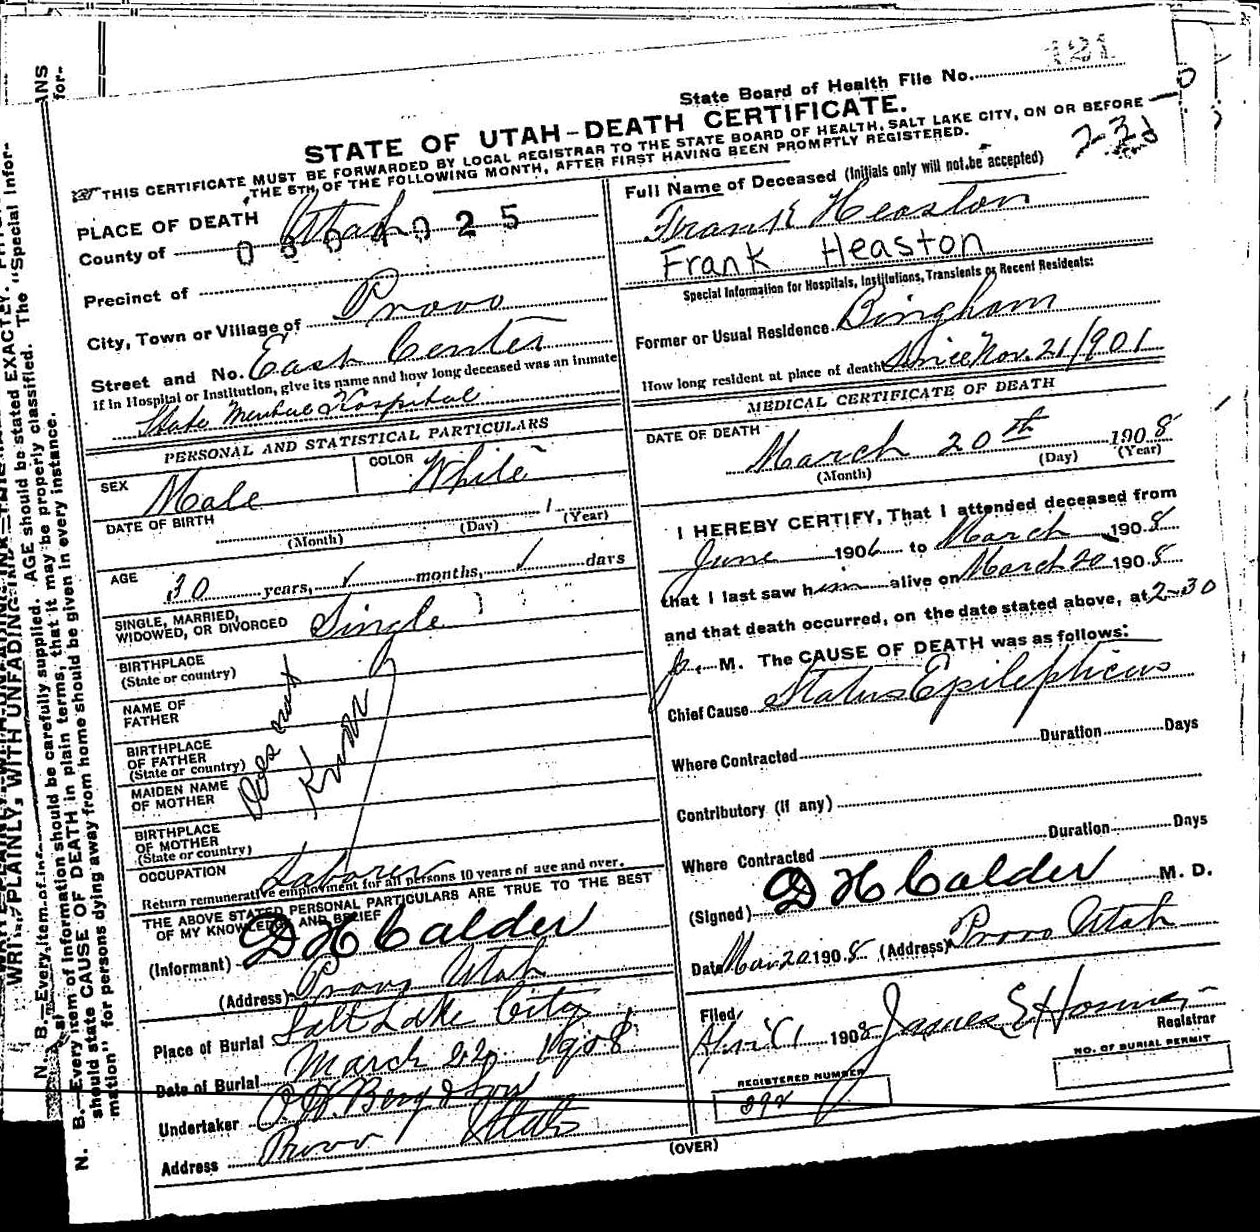 121
State Board of Health File No.
STATE OF UTAH-DEATH CERTIFICATE.
THIS CERTIFICATE MUST BE FORWARDED BY LOCAL REGISTRAR TO THE STATE BOARD OF HEALTH, SALT LAKE CITY, ON OR BEFORE
THE 5TH OF THE FOLLOWING MONTH, AFTER FIRST HAVING BEEN PROMPTLY REGISTERED.
PLACE OF DEATH
County of Utah
025
Precinct of
City, Town or Village of Provo
Street and No. East Center
If in Hospital or Institution, give its name and how long deceased was an inmate
State Mental Hospital
PERSONAL AND STATISTICAL PARTICULARS
SEX Male COLOR White
DATE OF BIRTH 1
(Month) (Day) (Year)
AGE 30 years, ✓ months, ✓ days
SINGLE, MARRIED,
WIDOWED, OR DIVORCED Single
BIRTHPLACE
(State or country)
NAME OF
FATHER
BIRTHPLACE
OF FATHER
(State or country)
MAIDEN NAME
OF MOTHER
BIRTHPLACE
OF MOTHER
(State or country)
Does not
Know
OCCUPATION Laborer
Return remunerative employment for all persons 10 years of age and over.
THE ABOVE STATED PERSONAL PARTICULARS ARE TRUE TO THE BEST
OF MY KNOWLEDGE AND BELIEF
(Informant) D H Calder
(Address) Provo Utah
Place of Burial Salt Lake City
Date of Burial March 22 1908
Undertaker Berg & Son
Address Provo Utah
Full Name of Deceased (Initials only will not be accepted)
Frank Heaston
Frank Heaston
Special Information for Hospitals, Institutions, Transients or Recent Residents:
Former or Usual Residence Bingham
How long resident at place of death Since Nov. 21/901
MEDICAL CERTIFICATE OF DEATH
DATE OF DEATH
March 20th 1908
(Month) (Day) (Year)
I HEREBY CERTIFY, That I attended deceased from
June 1906 to March 1908
that I last saw him alive on March 20 1908
and that death occurred, on the date stated above, at 2-30
p. M. The CAUSE OF DEATH was as follows:
Chief Cause Status Epilepticus
Where Contracted Duration Days
Contributory (if any)
Where Contracted Duration Days
(Signed) D H Calder M. D.
Date Mar 20 1908 (Address) Provo Utah
Filed
April 1 1908 James E
Registrar
REGISTERED NUMBER
392
NO. OF BURIAL PERMIT
(OVER)
N. B.—Every item of information should be carefully supplied. AGE should be stated EXACTLY.
should state CAUSE OF DEATH in plain terms, that it may be properly classified. The "Special Infor-
mation" for persons dying away from home should be given in every instance.
WRITE PLAINLY, WITH UNFADING INK